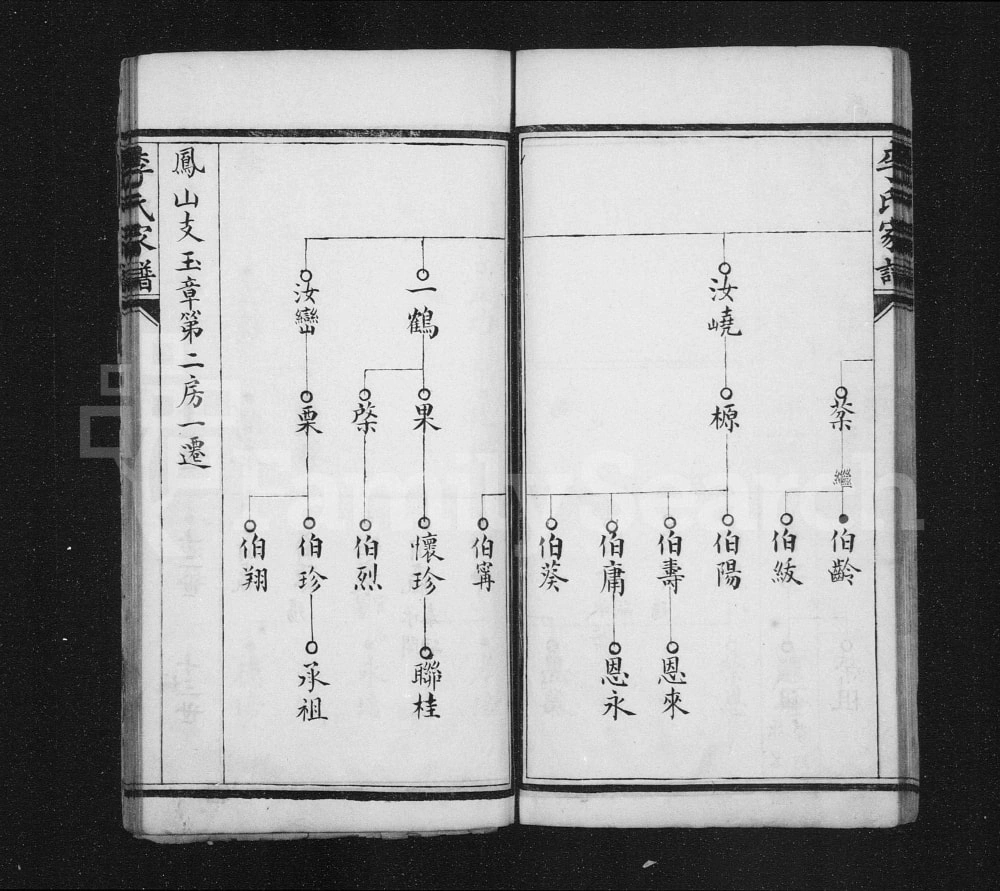 李氏家譜
汝嶢
棻
榞
繼
伯齡
伯紱
伯陽
伯壽
伯庸
伯葵
恩來
恩永
一鶴
汝巒
果
棨
栗
伯甯
懷珍
伯烈
伯珍
伯翔
聯桂
承祖
鳳山支玉章第二房一遷
李氏家譜
FamilySearch